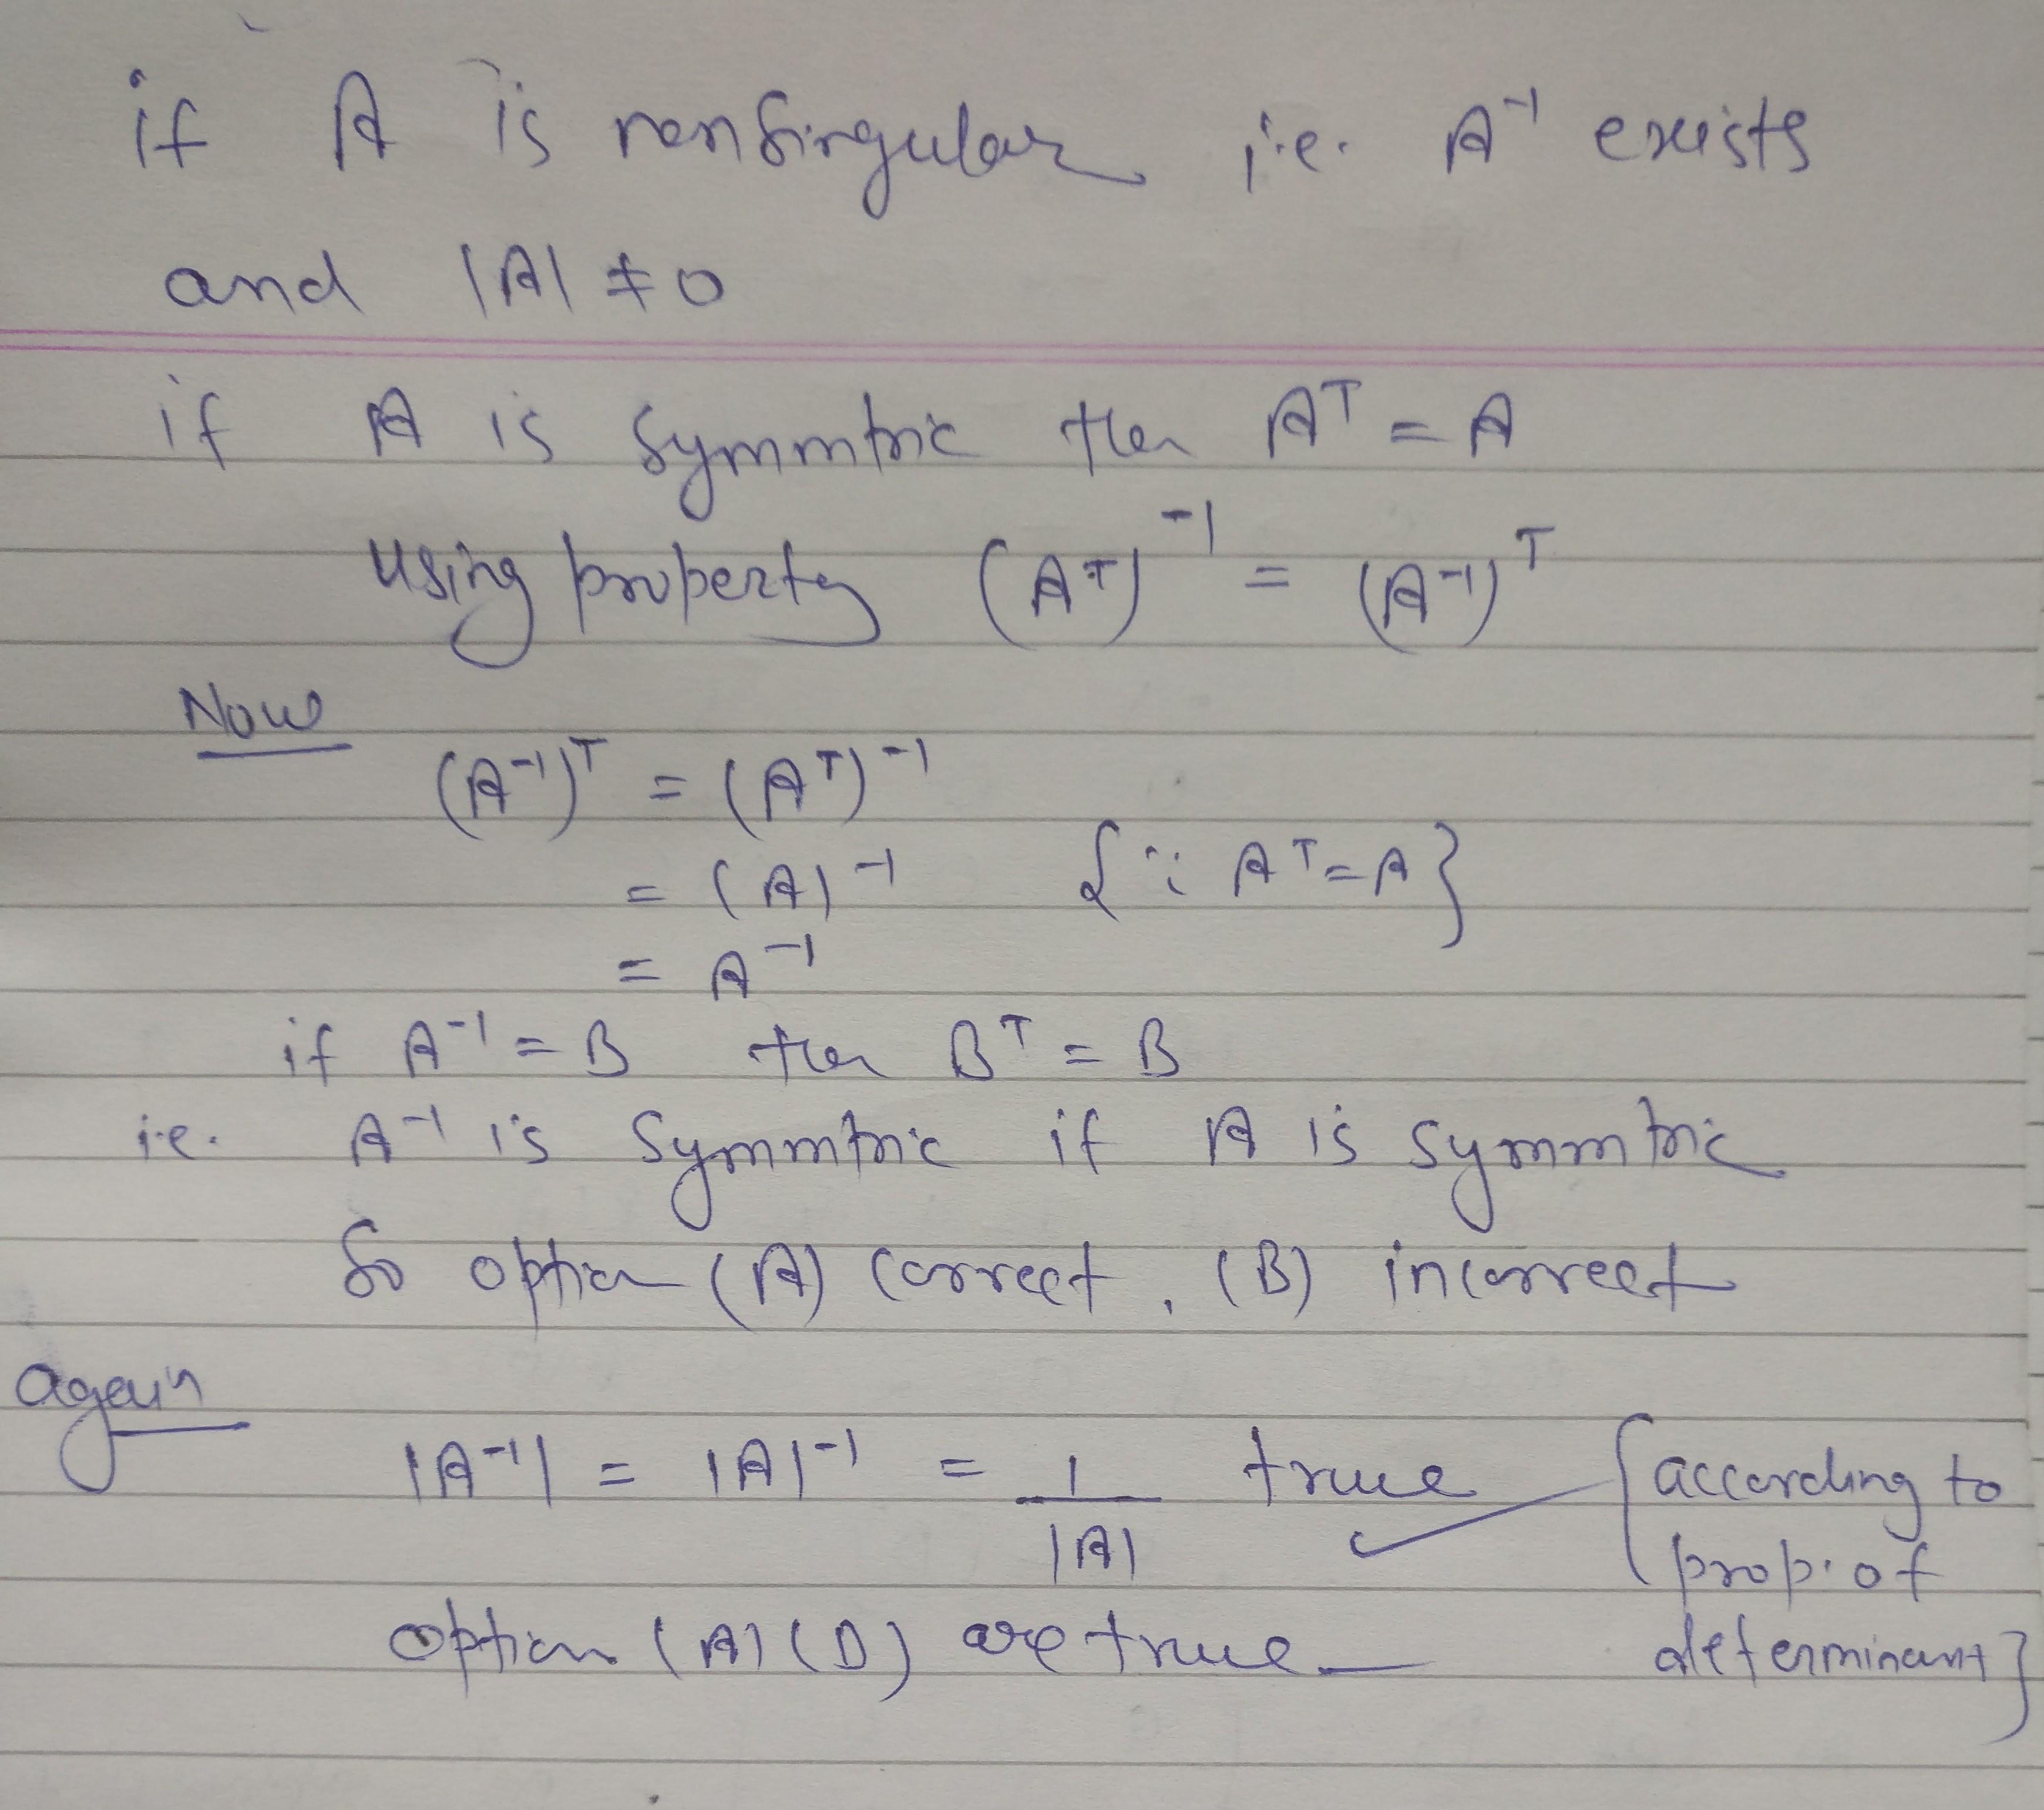 if A is nonsingular i.e. A⁻¹ exists
and |A| ≠ 0
if A is symmtric then Aᵀ = A
using property (Aᵀ)⁻¹ = (A⁻¹)ᵀ
Now
(A⁻¹)ᵀ = (Aᵀ)⁻¹
= (A)⁻¹ {∵ Aᵀ = A}
= A⁻¹
if A⁻¹ = B then Bᵀ = B
i.e. A⁻¹ is symmtric if A is symmtric
So option (A) correct, (B) incorrect
again
|A⁻¹| = |A|⁻¹ = 1/|A| true ✓ {according to
prop. of
determinant}
option (A) (D) are true